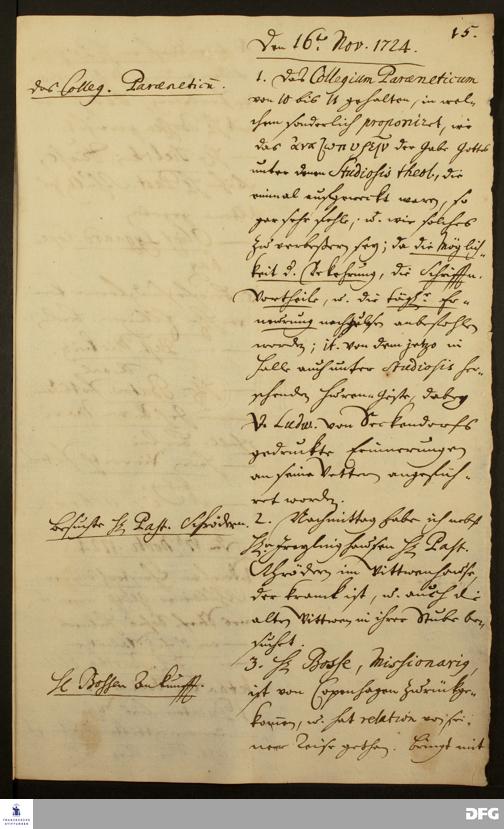 15.
Den 16t. Nov. 1724.
das Colleg. Paræneticũ.
1. Das Collegium Paræneticum
von 10 bis 11 gehalten, in wel-
chem sonderlich proponiret, wie
das ἀναζωπυρεῖν der Gabe Gottes
unter denen Studiosis theol., die
einmal aufgeweckt waren, so
gar sehr fehle, u. wie solches
zu verbeßern sey; da die Möglich-
keit d. Bekehrung, die Schrifften,
Vortheile, u. die tägl. Er-
neurung anbefohlen
worden; it. von dem jetzo in
Halle auch unter Studiosis her-
schenden Huren-Geiste, dabey
V. Ludw. von Seckendorfs
gedruckte Erinnerungen
an seine Vettern angefüh-
ret worden.
besuchte H. Past. Schrödern.
2. Nachmittag habe ich nebst
H. Freylinghausen H. Past.
Schrödern im Wittwenhause,
der kranck ist, u. auch die
alten Wittwen in ihrer Stube be-
suchet.
H. Bossen Ankunfft.
3. H. Bosse, Missionarius,
ist von Copenhagen zurückge-
kommen, u. hat relation von sei-
ner Reise gethan. bringt mit
FRANCKESCHE STIFTUNGEN
DFG